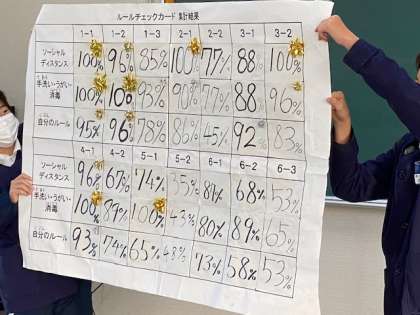 ルールチェックカード 集計結果
1-1 1-2 1-3 2-1 2-2 3-1 3-2
ソーシャルディスタンス 100% 95% 85% 100% 77% 88% 100%
手洗い・うがい・消毒 100% 100% 93% 90% 77% 88% 96%
自分のルール 95% 96% 78% 86% 45% 92% 83%
4-1 4-2 5-1 5-2 6-1 6-2 6-3
ソーシャルディスタンス 96% 67% 74% 35% 81% 68% 53%
手洗い・うがい・消毒 100% 89% 100% 43% 80% 89% 65%
自分のルール 93% 74% 65% 48% 73% 58% 53%